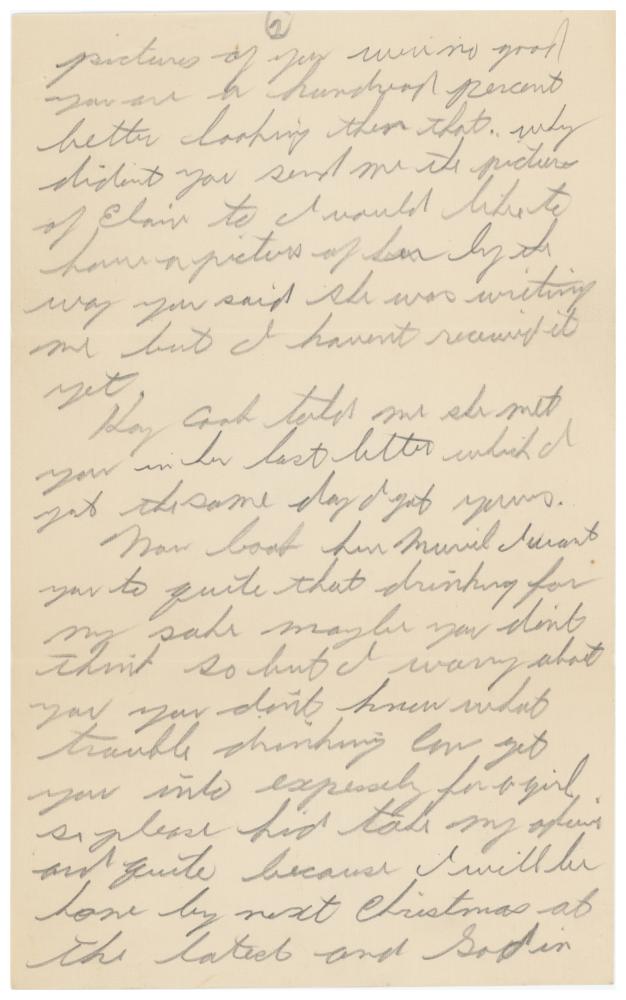 2
pictures of you were no good
you are a hundred percent
better looking then that. why
didint you send me the picture
of Elain to I would like to
have a picture of her by the
way you said she was writing
me but I havent received it
yet.
Kay Cook told me she met
you in her last letter which I
got the same day I got yours.
Now look here Muriel I want
you to quite that drinking for
my sake maybe you dont
think so but I worry about
you you don't know what
trouble drinking can get
you into expessely for a girl
so please kid take my advice
and quite because I will be
home by next Christmas at
the latest and God in